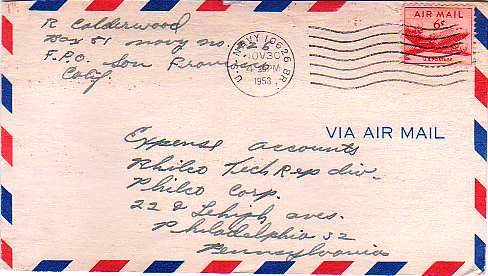 R Calderwood
Box 51 Navy no.
F.P.O. San Francisco
Calif.
U.S. NAVY 10626 BR.
NOV 30
PM
1953
AIR MAIL
6¢
U.S. POSTAGE
VIA AIR MAIL
Expense accounts
Philco Tech Rep div.
Philco Corp.
22 & Lehigh aves.
Philadelphia 32
Pennsylvania